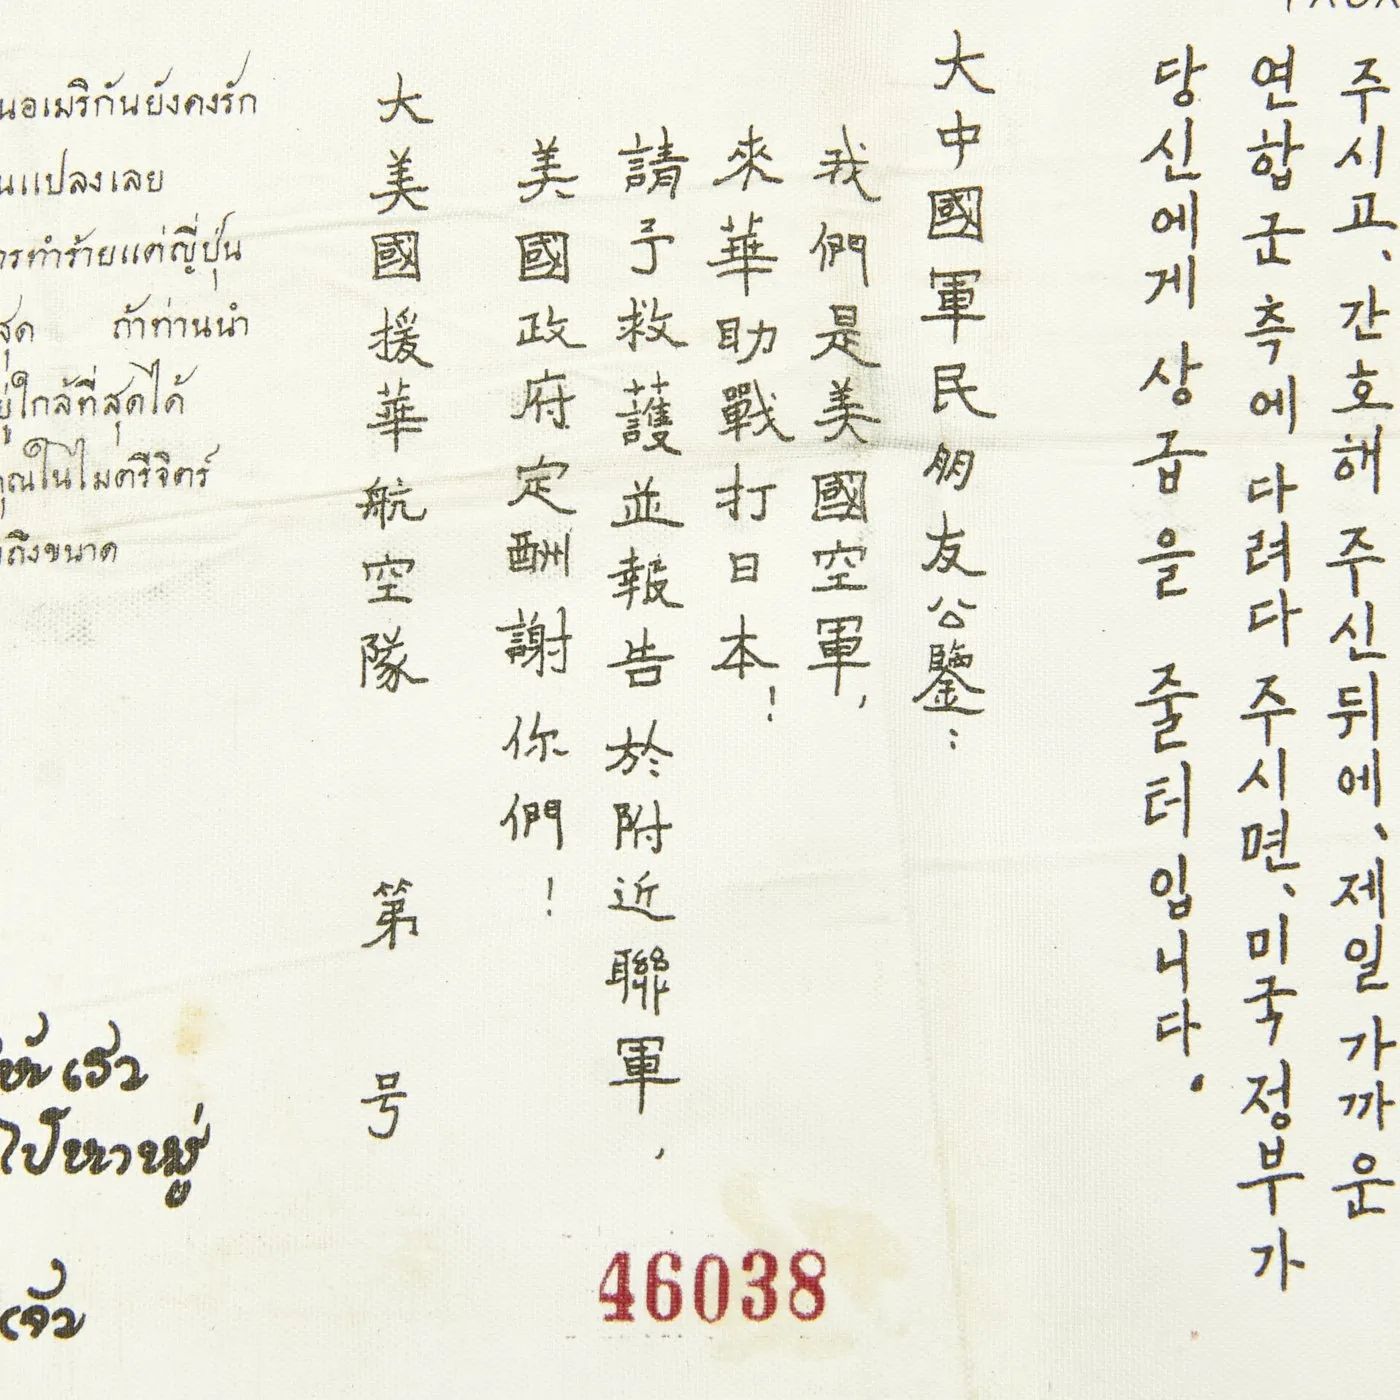 주시고、간호해 주신뒤에、제일 가까운
연합군측에 다려다 주시면、미국정부가
당신에게 상급을 줄터입니다.
大中國軍民朋友公鑒：
我們是美國空軍，
來華助戰打日本！
請予救護並報告於附近聯軍，
美國政府定酬謝你們！
大美國援華航空隊 第 号
นอเมริกันยังคงรัก
นแปลงเลย
ารทำร้ายแต่ญี่ปุ่น
สุด ถ้าท่านนำ
ยู่ใกล้ที่สุดได้
คุณในไมตรีจิตร์
ถึงขนาด
เร็ว
46038